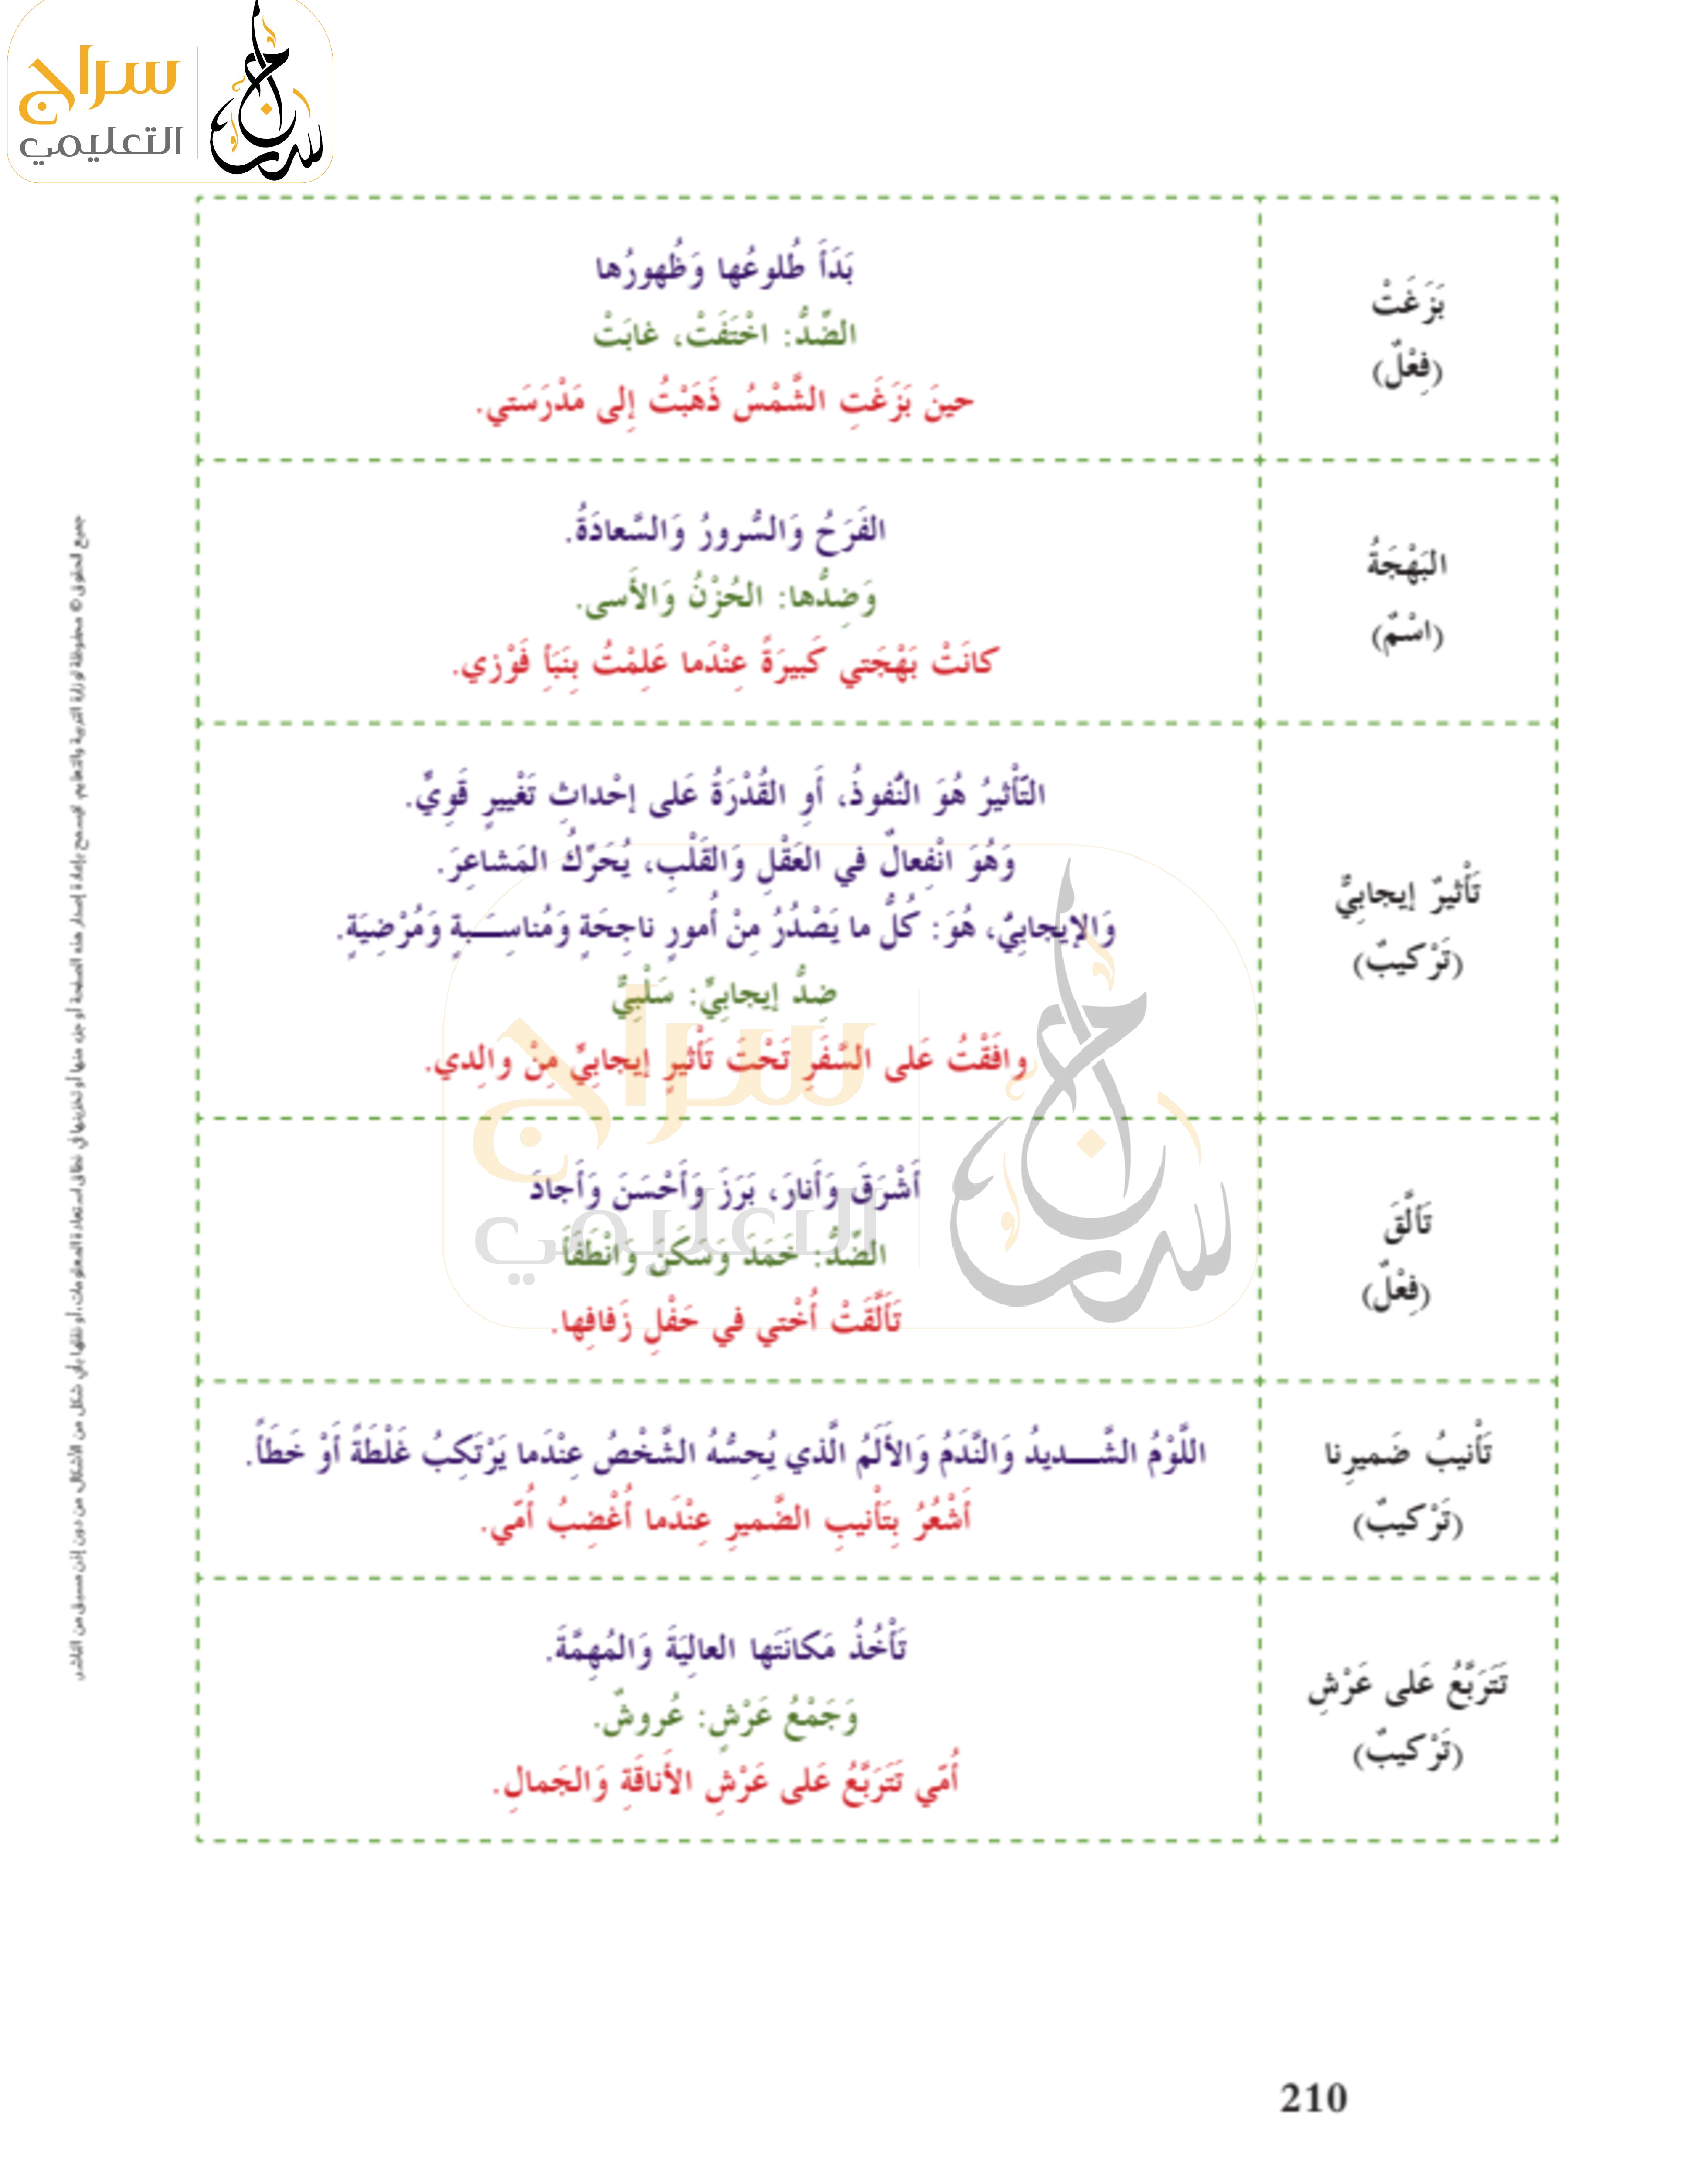 سراج
التعليمي
بَزَغَتْ
(فِعْلٌ)
بَدَأَ طُلوعُها وَظُهورُها
الضِّدُّ: اخْتَفَتْ، غابَتْ
حينَ بَزَغَتِ الشَّمْسُ ذَهَبْتُ إِلى مَدْرَسَتي.
البَهْجَةُ
(اسْمٌ)
الفَرَحُ وَالسُّرورُ وَالسَّعادَةُ.
وَضِدُّها: الحُزْنُ وَالأَسى.
كانَتْ بَهْجَتي كَبيرَةً عِنْدَما عَلِمْتُ بِنَبَأِ فَوْزي.
تَأْثيرٌ إيجابِيٌّ
(تَرْكيبٌ)
التَّأْثيرُ هُوَ النُّفوذُ، أَوِ القُدْرَةُ عَلى إحْداثِ تَغْييرٍ قَوِيٍّ.
وَهُوَ انْفِعالٌ في العَقْلِ وَالقَلْبِ، يُحَرِّكُ المَشاعِرَ.
وَالإيجابِيُّ، هُوَ: كُلُّ ما يَصْدُرُ مِنْ أُمورٍ ناجِحَةٍ وَمُناسِبَةٍ وَمُرْضِيَةٍ.
ضِدُّ إيجابِيٍّ: سَلْبِيٌّ
وافَقْتُ عَلى السَّفَرِ تَحْتَ تَأْثيرٍ إيجابِيٍّ مِنْ والِدي.
تَأَلَّقَ
(فِعْلٌ)
أَشْرَقَ وَأَنارَ، بَرَزَ وَأَحْسَنَ وَأَجادَ
الضِّدُّ: خَمَدَ وَسَكَنَ وَانْطَفَأَ
تَأَلَّقَتْ أُخْتي في حَفْلِ زَفافِها.
تَأْنيبُ ضَميرِنا
(تَرْكيبٌ)
اللَّوْمُ الشَّديدُ وَالنَّدَمُ وَالأَلَمُ الَّذي يُحِسُّهُ الشَّخْصُ عِنْدَما يَرْتَكِبُ غَلْطَةً أَوْ خَطَأً.
أَشْعُرُ بِتَأْنيبِ الضَّميرِ عِنْدَما أُغْضِبُ أُمّي.
تَتَرَبَّعُ عَلى عَرْشِ
(تَرْكيبٌ)
تَأْخُذُ مَكانَتَها العالِيَةَ وَالمُهِمَّةَ.
وَجَمْعُ عَرْشٍ: عُروشٌ.
أُمّي تَتَرَبَّعُ عَلى عَرْشِ الأَناقَةِ وَالجَمالِ.
سراج
التعليمي
جميع الحقوق © محفوظة لوزارة التربية والتعليم. لا يسمح بإعادة إصدار هذه الصفحة أو جزء منها أو تخزينها في نطاق استعادة المعلومات، أو نقلها بأي شكل من الأشكال من دون إذن مسبق من الناشر
210